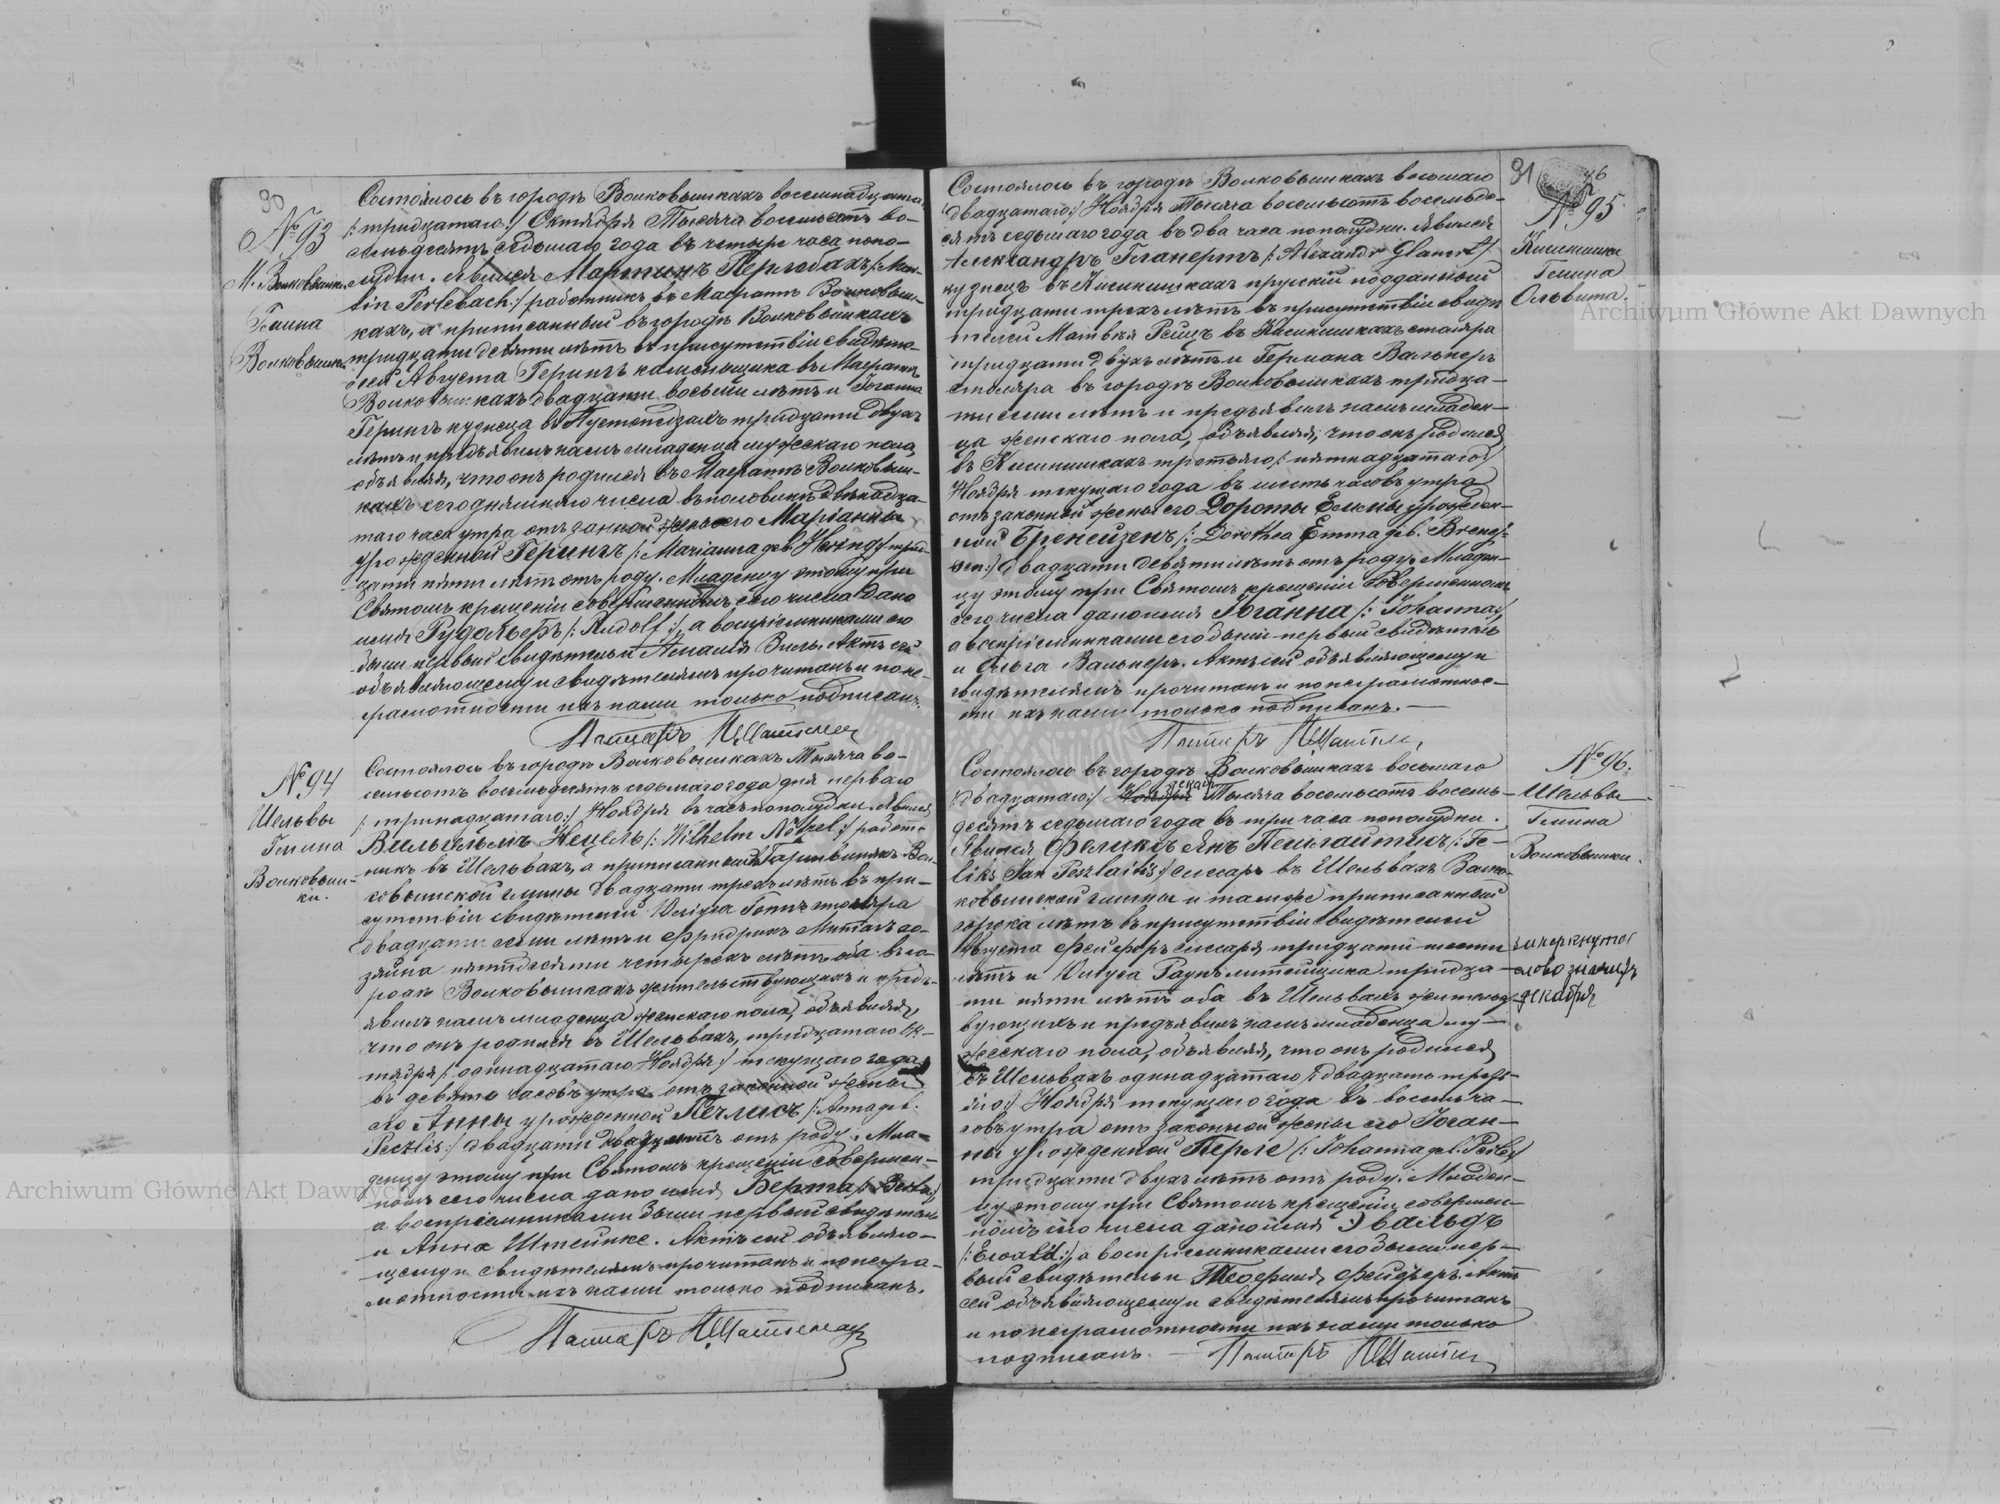 30
№ 93
М. Волковышки
Гмина
Волковышки
Состоялось въ городѣ Волковышкахъ восемнадцатаго
/:тридцатаго:/ Октября Тысяча восемьсотъ во-
семьдесятъ седьмаго года въ четыре часа попо-
лудни. Явился Мартинъ Перлебахъ /:Mar-
tin Perlebach:/ работникъ въ Маѣратѣ Волковыш-
кахъ, а приписанный въ городѣ Волковышкахъ
тридцати девяти лѣтъ въ присутствіи свидѣте-
лей Августа Герингъ каменьщика въ Маѣратѣ
Волковышкахъ двадцати восьми лѣтъ и Іоганна
Герингъ кузнеца въ тридцати двухъ
лѣтъ и предъявилъ намъ младенца мужескаго пола,
объявляя, что онъ родился въ Маѣратѣ Волковыш-
кахъ сегодняшняго числа въ половинѣ двѣнадца-
таго часа утра отъ законной жены его Маріанны
урожденной Герингъ /:Marianna geb. Hering:/ трид-
цати пяти лѣтъ отъ роду. Младенцу этому при
Святомъ крещеніи совершенномъ сего числа дано
имя Рудольфъ /:Rudolf:/, а воспріемниками его
были первый свидѣтель и Амалія Актъ сей
объявляющему и свидѣтелямъ прочитанъ и по не-
грамотности ихъ нами только подписанъ.
Пасторъ
№ 94
Шельвы
Гмина
Волковыш-
ки.
Состоялось въ городѣ Волковышкахъ Тысяча во-
семьсотъ восемьдесятъ седьмаго года дня перваго
/:тринадцатаго:/ Ноября въ часъ пополудни. Явился
Вильгельмъ Нецель /:Wilhelm Nötzel:/ работ-
никъ въ Шельвахъ, а приписанный Вол-
ковышской гмины двадцати трехъ лѣтъ въ при-
сутствіи свидѣтелей Юліуса столяра
двадцати семи лѣтъ и Фридрихъ хо-
зяина пятидесяти четырехъ лѣтъ оба въ го-
родѣ Волковышкахъ жительствующихъ и предъ-
явилъ намъ младенца женскаго пола, объявляя,
что онъ родился въ Шельвахъ, тридцатаго Ок-
тября /:одинадцатаго Ноября:/ текущаго года
въ девять часовъ утра отъ законной жены
его Анны урожденной Печлисъ /:Anna geb.
Peczlis:/ двадцати двухъ лѣтъ отъ роду. Мла-
денцу этому при Святомъ крещеніи совершен-
номъ сего числа дано имя Берта /:Berta:/
а воспріемниками были первый свидѣтель
и Анна Штейнке. Актъ сей объявляю-
щему и свидѣтелямъ прочитанъ и по негра-
мотности ихъ нами только подписанъ.
Пасторъ
31
№ 95
Гмина
Ольвита.
Состоялось въ городѣ Волковышкахъ восьмаго
/:двадцатаго:/ Ноября Тысяча восемьсотъ восемьде-
сятъ седьмаго года въ два часа пополудни. Явился
Александръ Гланертъ /:Alexandr Glanert:/
кузнецъ въ прусскій подданный
тридцати трехъ лѣтъ въ присутствіи свидѣ-
телей Матвѣя въ столяра
тридцати двухъ лѣтъ и Германа Вальнеръ
столяра въ городѣ Волковышкахъ тридца-
ти семи лѣтъ и предъявилъ намъ младен-
ца женскаго пола, объявляя, что онъ родился
въ третьяго /:пятнадцатаго:/
Ноября текущаго года въ шесть часовъ утра
отъ законной жены его Дороты Эммы урожден-
ной Бренейзенъ /:Dorothea Emma geb. Brenei-
sen:/ двадцати девяти лѣтъ отъ роду. Младен-
цу этому при Святомъ крещеніи совершенномъ
сего числа дано имя Іоганна /:Johanna:/
а воспріемниками его были первый свидѣтель
и Ольга Вальнеръ. Актъ сей объявляющему и
свидѣтелямъ прочитанъ и по неграмотнос-
ти ихъ нами только подписанъ.
Пасторъ
№ 96.
Шельвы
Гмина
Волковышки.
Состоялось въ городѣ Волковышкахъ восьмаго
декабря
/:двадцатаго:/ Ноября Тысяча восемьсотъ восемь-
десятъ седьмаго года въ три часа пополудни.
Явился Феликсъ Янъ Пешлайтисъ /:Fe-
liks Jan Peszlaitis:/ слесарь въ Шельвахъ Волко-
ковышской гмины и тамже приписанный
сорока лѣтъ въ присутствіи свидѣтелей
Августа Фейферъ слесаря тридцати шести
лѣтъ и Юлиуса литейщика тридца-
ти пяти лѣтъ оба въ Шельвахъ жительст-
вующихъ и предъявилъ намъ младенца му-
жескаго пола, объявляя, что онъ родился
въ Шельвахъ одинадцатаго /:двадцать треть-
яго:/ Ноября текущаго года въ восемь ча-
совъ утра отъ законной жены его Іоган-
ны урожденной
тридцати двухъ лѣтъ отъ роду. Младен-
цу этому при Святомъ крещеніи совершен-
номъ сего числа дано имя Эвальдъ
/:Ewald:/, а воспріемниками его были пер-
вый свидѣтель и Фейферъ. Актъ
сей объявляющему и свидѣтелямъ прочитанъ
и по неграмотности ихъ нами только
подписанъ. Пасторъ
зачеркнутое
слово значитъ
декабря
Archiwum Główne Akt Dawnych
Archiwum Główne Akt Dawnych